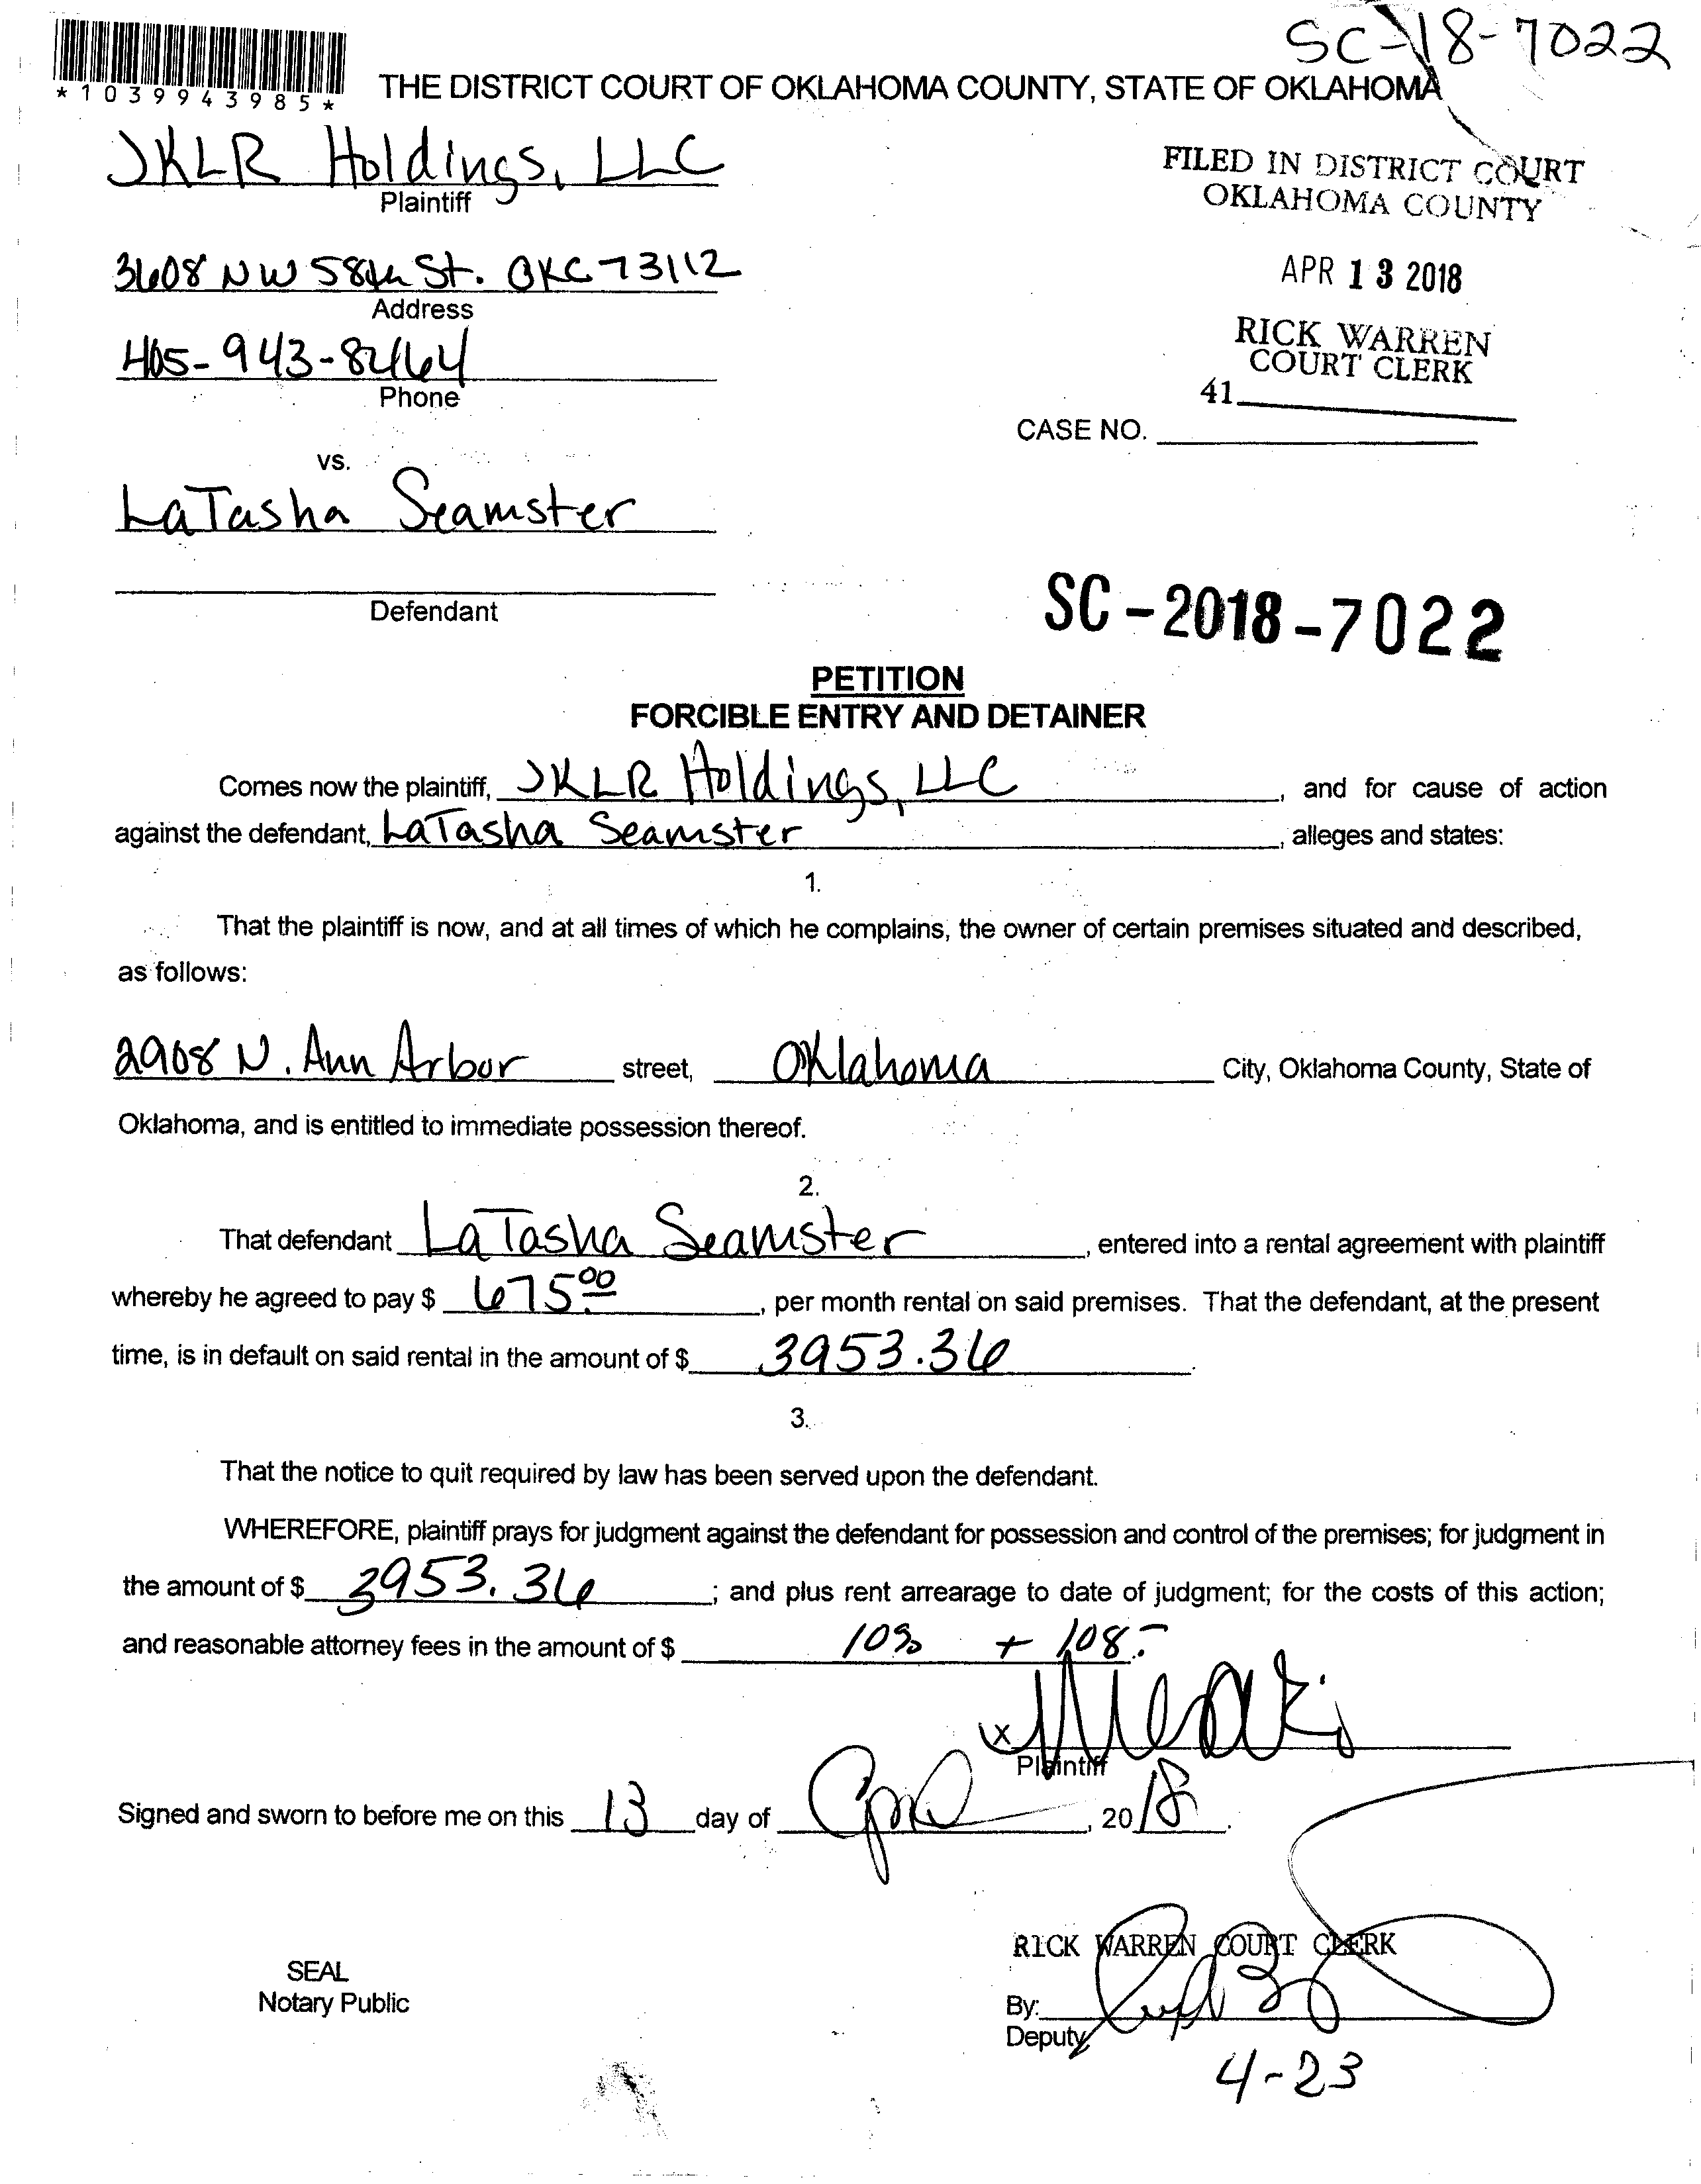 SC-18-7022
*1039943985*
THE DISTRICT COURT OF OKLAHOMA COUNTY, STATE OF OKLAHOMA
JKLR Holdings, LLC
Plaintiff
FILED IN DISTRICT COURT
OKLAHOMA COUNTY
3608 NW 58th St. OKC 73112
Address
APR 13 2018
405-943-8464
Phone
RICK WARREN
COURT CLERK
41
CASE NO.
vs.
LaTasha Seamster
Defendant
SC-2018-7022
PETITION
FORCIBLE ENTRY AND DETAINER
Comes now the plaintiff, JKLR Holdings, LLC, and for cause of action
against the defendant, LaTasha Seamster, alleges and states:
1.
That the plaintiff is now, and at all times of which he complains, the owner of certain premises situated and described,
as follows:
2908 N. Ann Arbor street, Oklahoma City, Oklahoma County, State of
Oklahoma, and is entitled to immediate possession thereof.
2.
That defendant LaTasha Seamster, entered into a rental agreement with plaintiff
whereby he agreed to pay $ 675.00, per month rental on said premises. That the defendant, at the present
time, is in default on said rental in the amount of $ 3953.36.
3.
That the notice to quit required by law has been served upon the defendant.
WHEREFORE, plaintiff prays for judgment against the defendant for possession and control of the premises; for judgment in
the amount of $ 3953.36; and plus rent arrearage to date of judgment; for the costs of this action;
and reasonable attorney fees in the amount of $ 10% + 108.-
X
Plaintiff
Signed and sworn to before me on this 13 day of April, 2018.
RICK WARREN COURT CLERK
SEAL
Notary Public
By:
Deputy
4-23